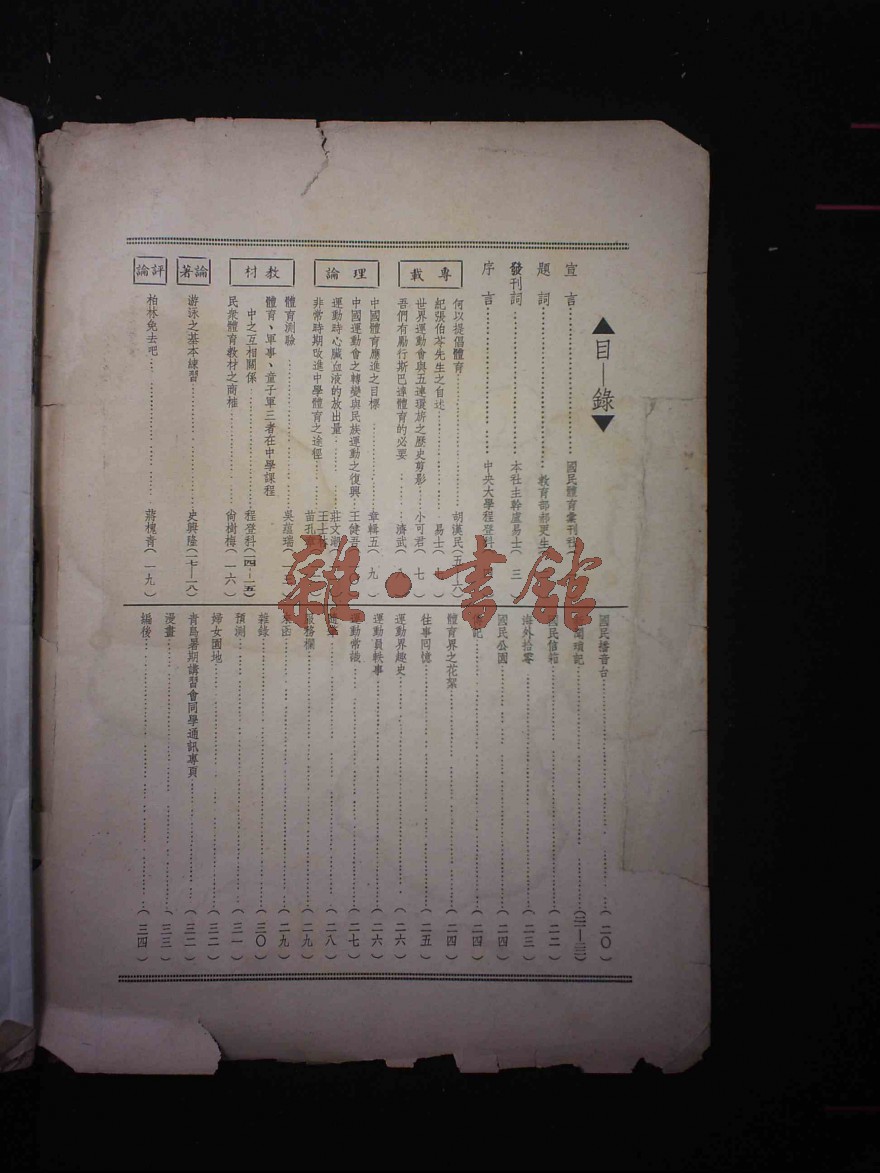 ▲目—錄▼
宣言 國民體育彙刊社
題詞 教育部郝更生
發刊詞 本社主幹盧易士（三）
序言 中央大學程登科
專載
何以提倡體育 胡漢民（五—六）
紀張伯苓先生之自述 易士
世界運動會與五連環旂之歷史剪影 小可君（七）
吾們有勵行斯巴達體育的必要 濤武
理論
中國體育應進之目標 章輯五（九）
中國運動會之轉變與民族運動之復興 王健吾
運動時心臟血液的放出量 莊文潮
非常時期改進中學體育之途徑 王士林 苗孔
教材
體育測驗 吳蘊瑞
體育、軍事、童子軍三者在中學課程
中之互相關係 程登科（一四—一五）
民衆體育教材之商榷 尙樹梅（一六）
論著
游泳之基本練習 史興隆（一七—一八）
評論
柏林免去吧 蔣槐青（一九）
國民播音台（二〇）
瑣記
國民信箱（二二）
海外拾零（二三）
國民公園（二四）
記（二四）
體育界之花絮（二四）
往事囘憶（二五）
運動界趣史（二六）
運動員軼事（二六）
運動常識（二七）
（二八）
服務欄（二九）
函（二九）
雜錄（三〇）
預測（三一）
婦女園地（三二）
青島暑期講習會同學通訊專頁（三二）
漫畫（三三）
編後（三四）
雜·書館